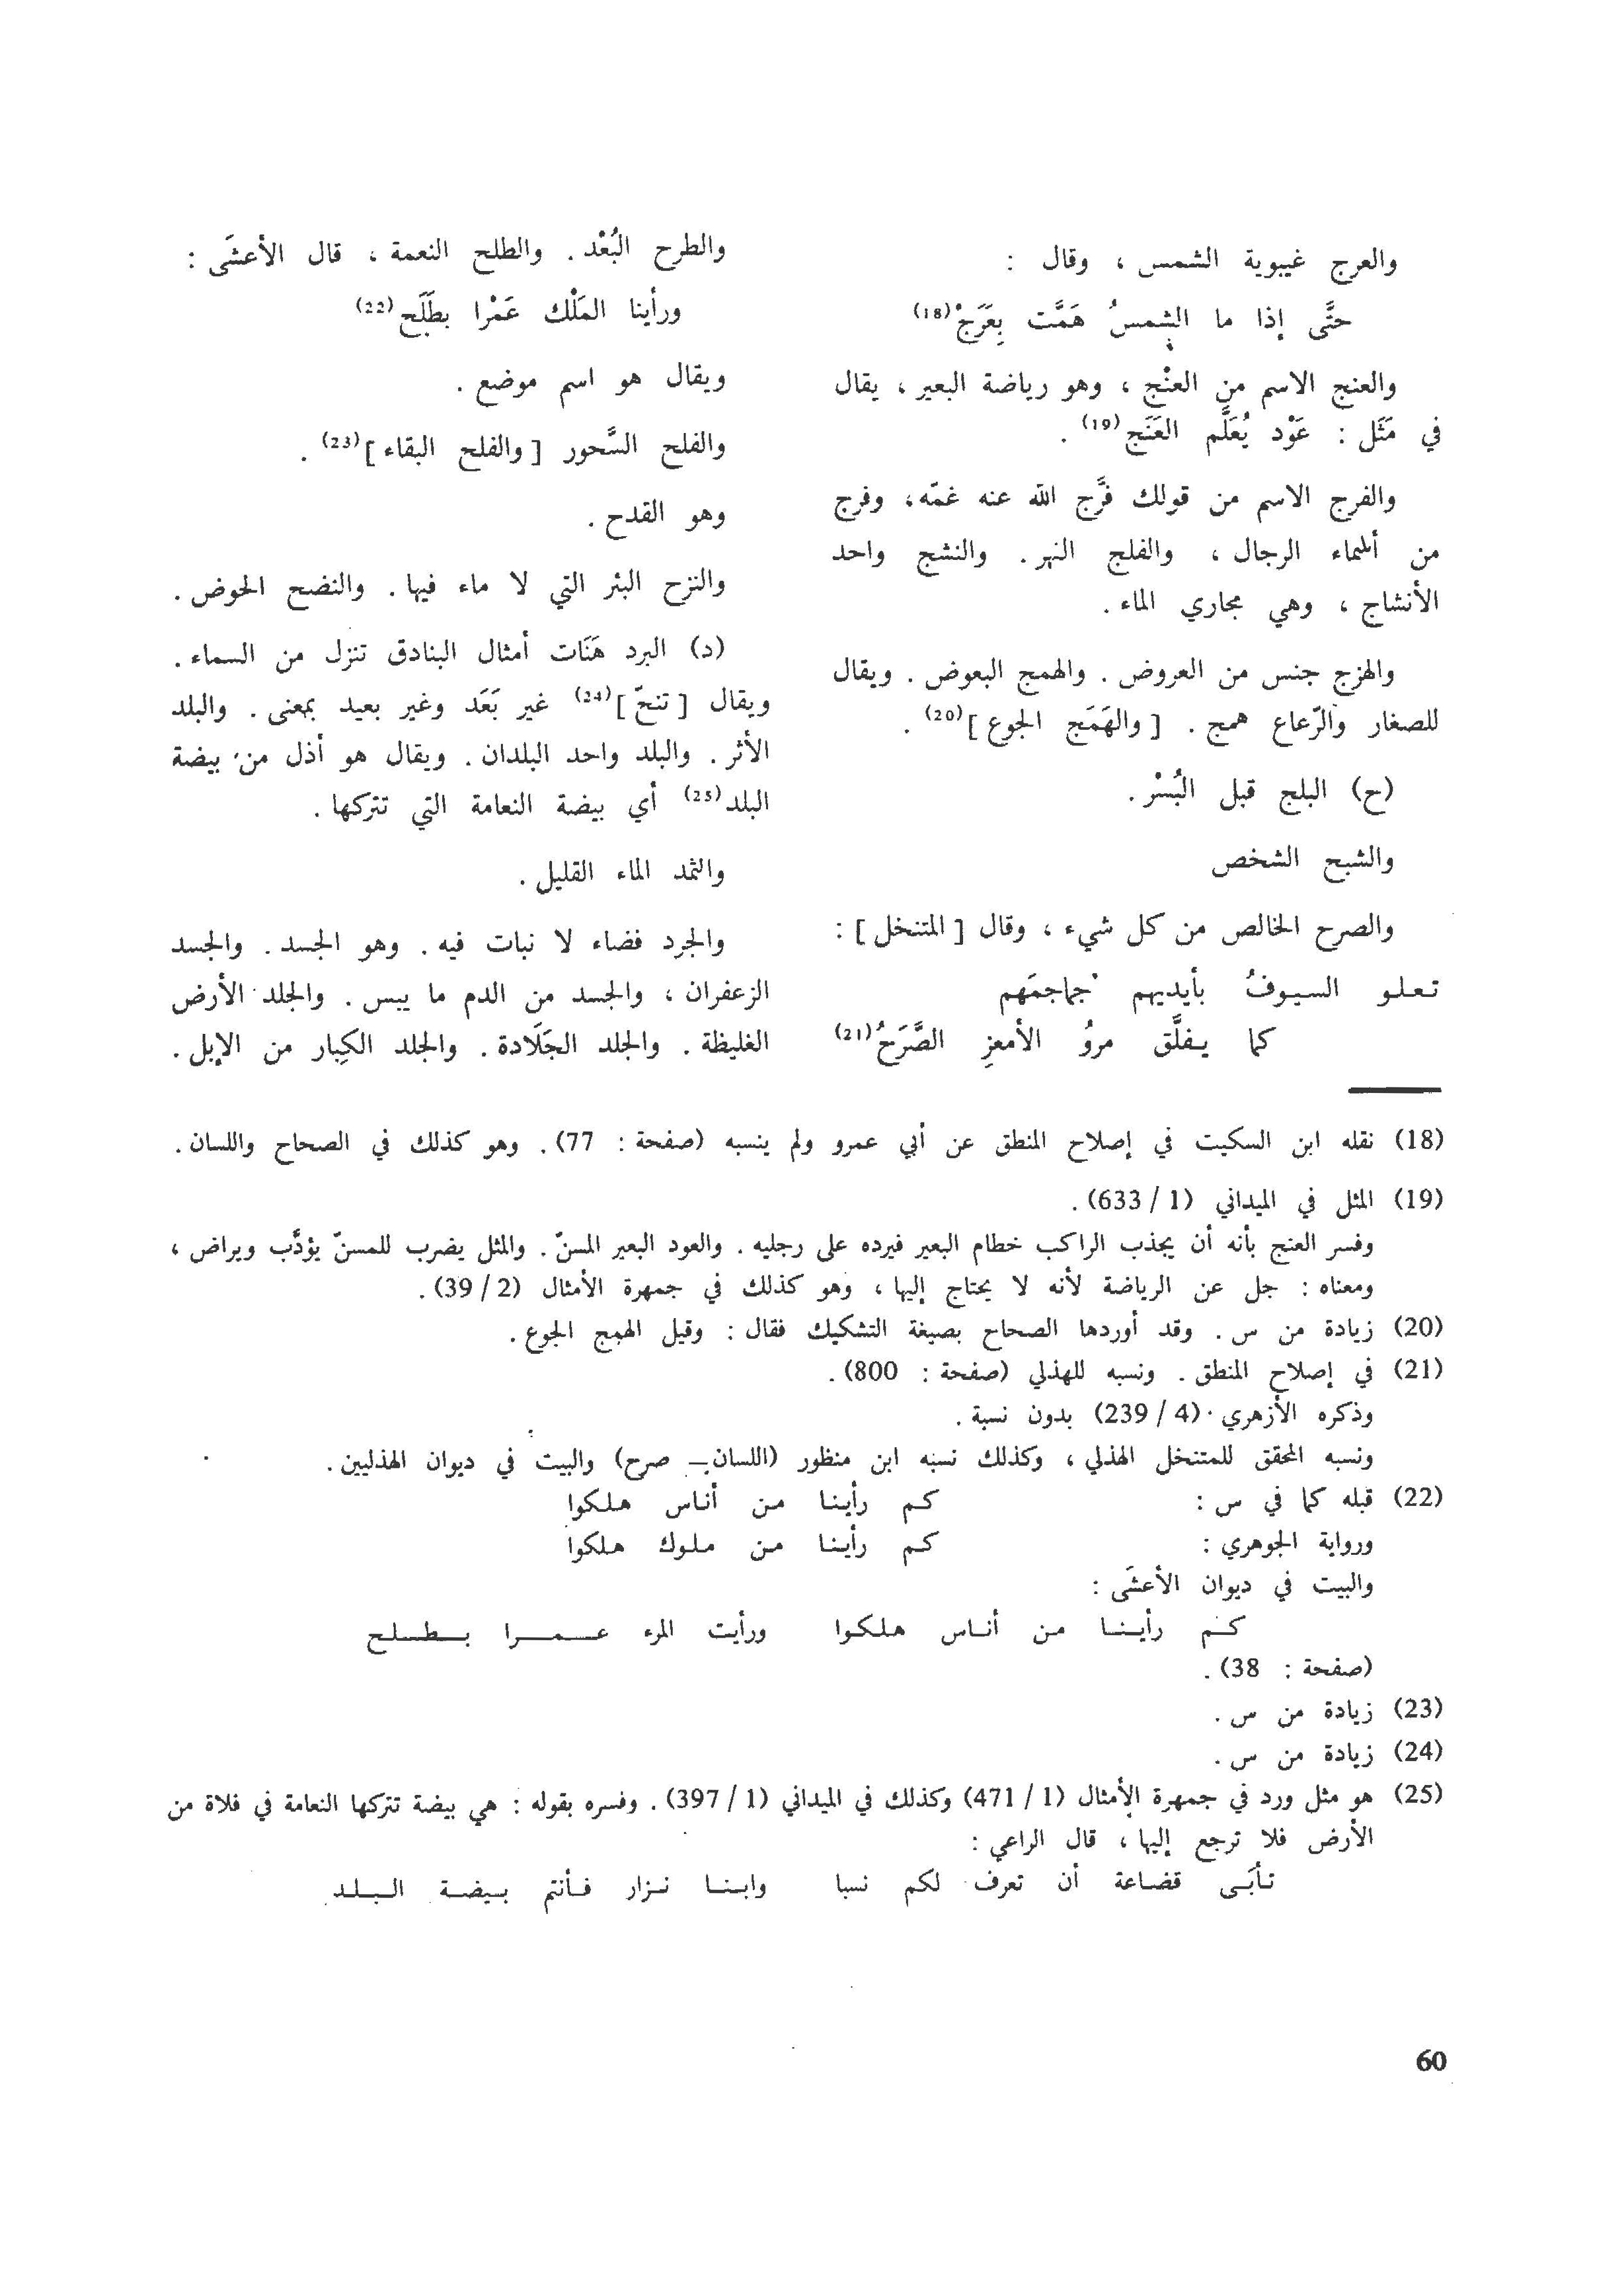 والعرج غيبوبة الشمس ، وقال :
حتَّى إذا ما الشمسُ هَمَّت بِعَرَجْ(18)
والعنج الاسم من العنْج ، وهو رياضة البعير ، يقال
في مَثَل : عَوْد يُعَلَّم العَنَج(19) .
والفرج الاسم من قولك فرَّج الله عنه غمّه، وفرج
من أسماء الرجال ، والفلج النهر . والنشج واحد
الأنشاج ، وهي مجاري الماء .
والهزج جنس من العروض . والهمج البعوض . ويقال
للصغار والرّعاع همج . [ والهَمَج الجوع ](20) .
(ح) البلج قبل البُسْر .
والشبح الشخص
والصرح الخالص من كل شيء ، وقال [ المتنخل ] :
تعلو السيوفُ بأيديهم جماجمَهم
كما يفلَّق مروُ الأمعزِ الصَّرَحُ(21)
والطرح البُعْد . والطلح النعمة ، قال الأعشَى :
ورأينا المَلْك عَمْرا بطَلَح(22)
ويقال هو اسم موضع .
والفلح السَّحور [ والفلح البقاء ](23) .
وهو القدح .
والنزح البئر التي لا ماء فيها . والنضح الحوض .
(د) البرد هَنَات أمثال البنادق تنزل من السماء .
ويقال [ تنحّ ](24) غير بَعَد وغير بعيد بمعنى . والبلد
الأثر . والبلد واحد البلدان . ويقال هو أذل من بيضة
البلد(25) أي بيضة النعامة التي تتركها .
والثمد الماء القليل .
والجرد فضاء لا نبات فيه . وهو الجسد . والجسد
الزعفران ، والجسد من الدم ما يبس . والجلد الأرض
الغليظة . والجلد الجَلَادة . والجلد الكِبار من الإبل .
(18) نقله ابن السكيت في إصلاح المنطق عن أبي عمرو ولم ينسبه (صفحة : 77) . وهو كذلك في الصحاح واللسان .
(19) المثل في الميداني (1 / 633) .
وفسر العنج بأنه أن يجذب الراكب خطام البعير فيرده على رجليه . والعود البعير المسنّ . والمثل يضرب للمسنّ يؤدَّب ويراض ،
ومعناه : جل عن الرياضة لأنه لا يحتاج إليها ، وهو كذلك في جمهرة الأمثال (2 / 39) .
(20) زيادة من س . وقد أوردها الصحاح بصيغة التشكيك فقال : وقيل الهمج الجوع .
(21) في إصلاح المنطق . ونسبه للهذلي (صفحة : 800) .
وذكره الأزهري (4 / 239) بدون نسبة .
ونسبه المحقق للمتنخل الهذلي ، وكذلك نسبه ابن منظور (اللسان – صرح) والبيت في ديوان الهذليين .
(22) قبله كما في س : كم رأينا من أناس هلكوا
ورواية الجوهري : كم رأينا من ملوك هلكوا
والبيت في ديوان الأعشَى :
كم رأينا من أناس هلكوا ورأيت المرء عمرا بطلح
(صفحة : 38) .
(23) زيادة من س .
(24) زيادة من س .
(25) هو مثل ورد في جمهرة الأمثال (1 / 471) وكذلك في الميداني (1 / 397) . وفسره بقوله : هي بيضة تتركها النعامة في فلاة من
الأرض فلا ترجع إليها ، قال الراعي :
تأبَى قضاعة أن تعرف لكم نسبا وابنا نزار فأنتم بيضة البلد
60